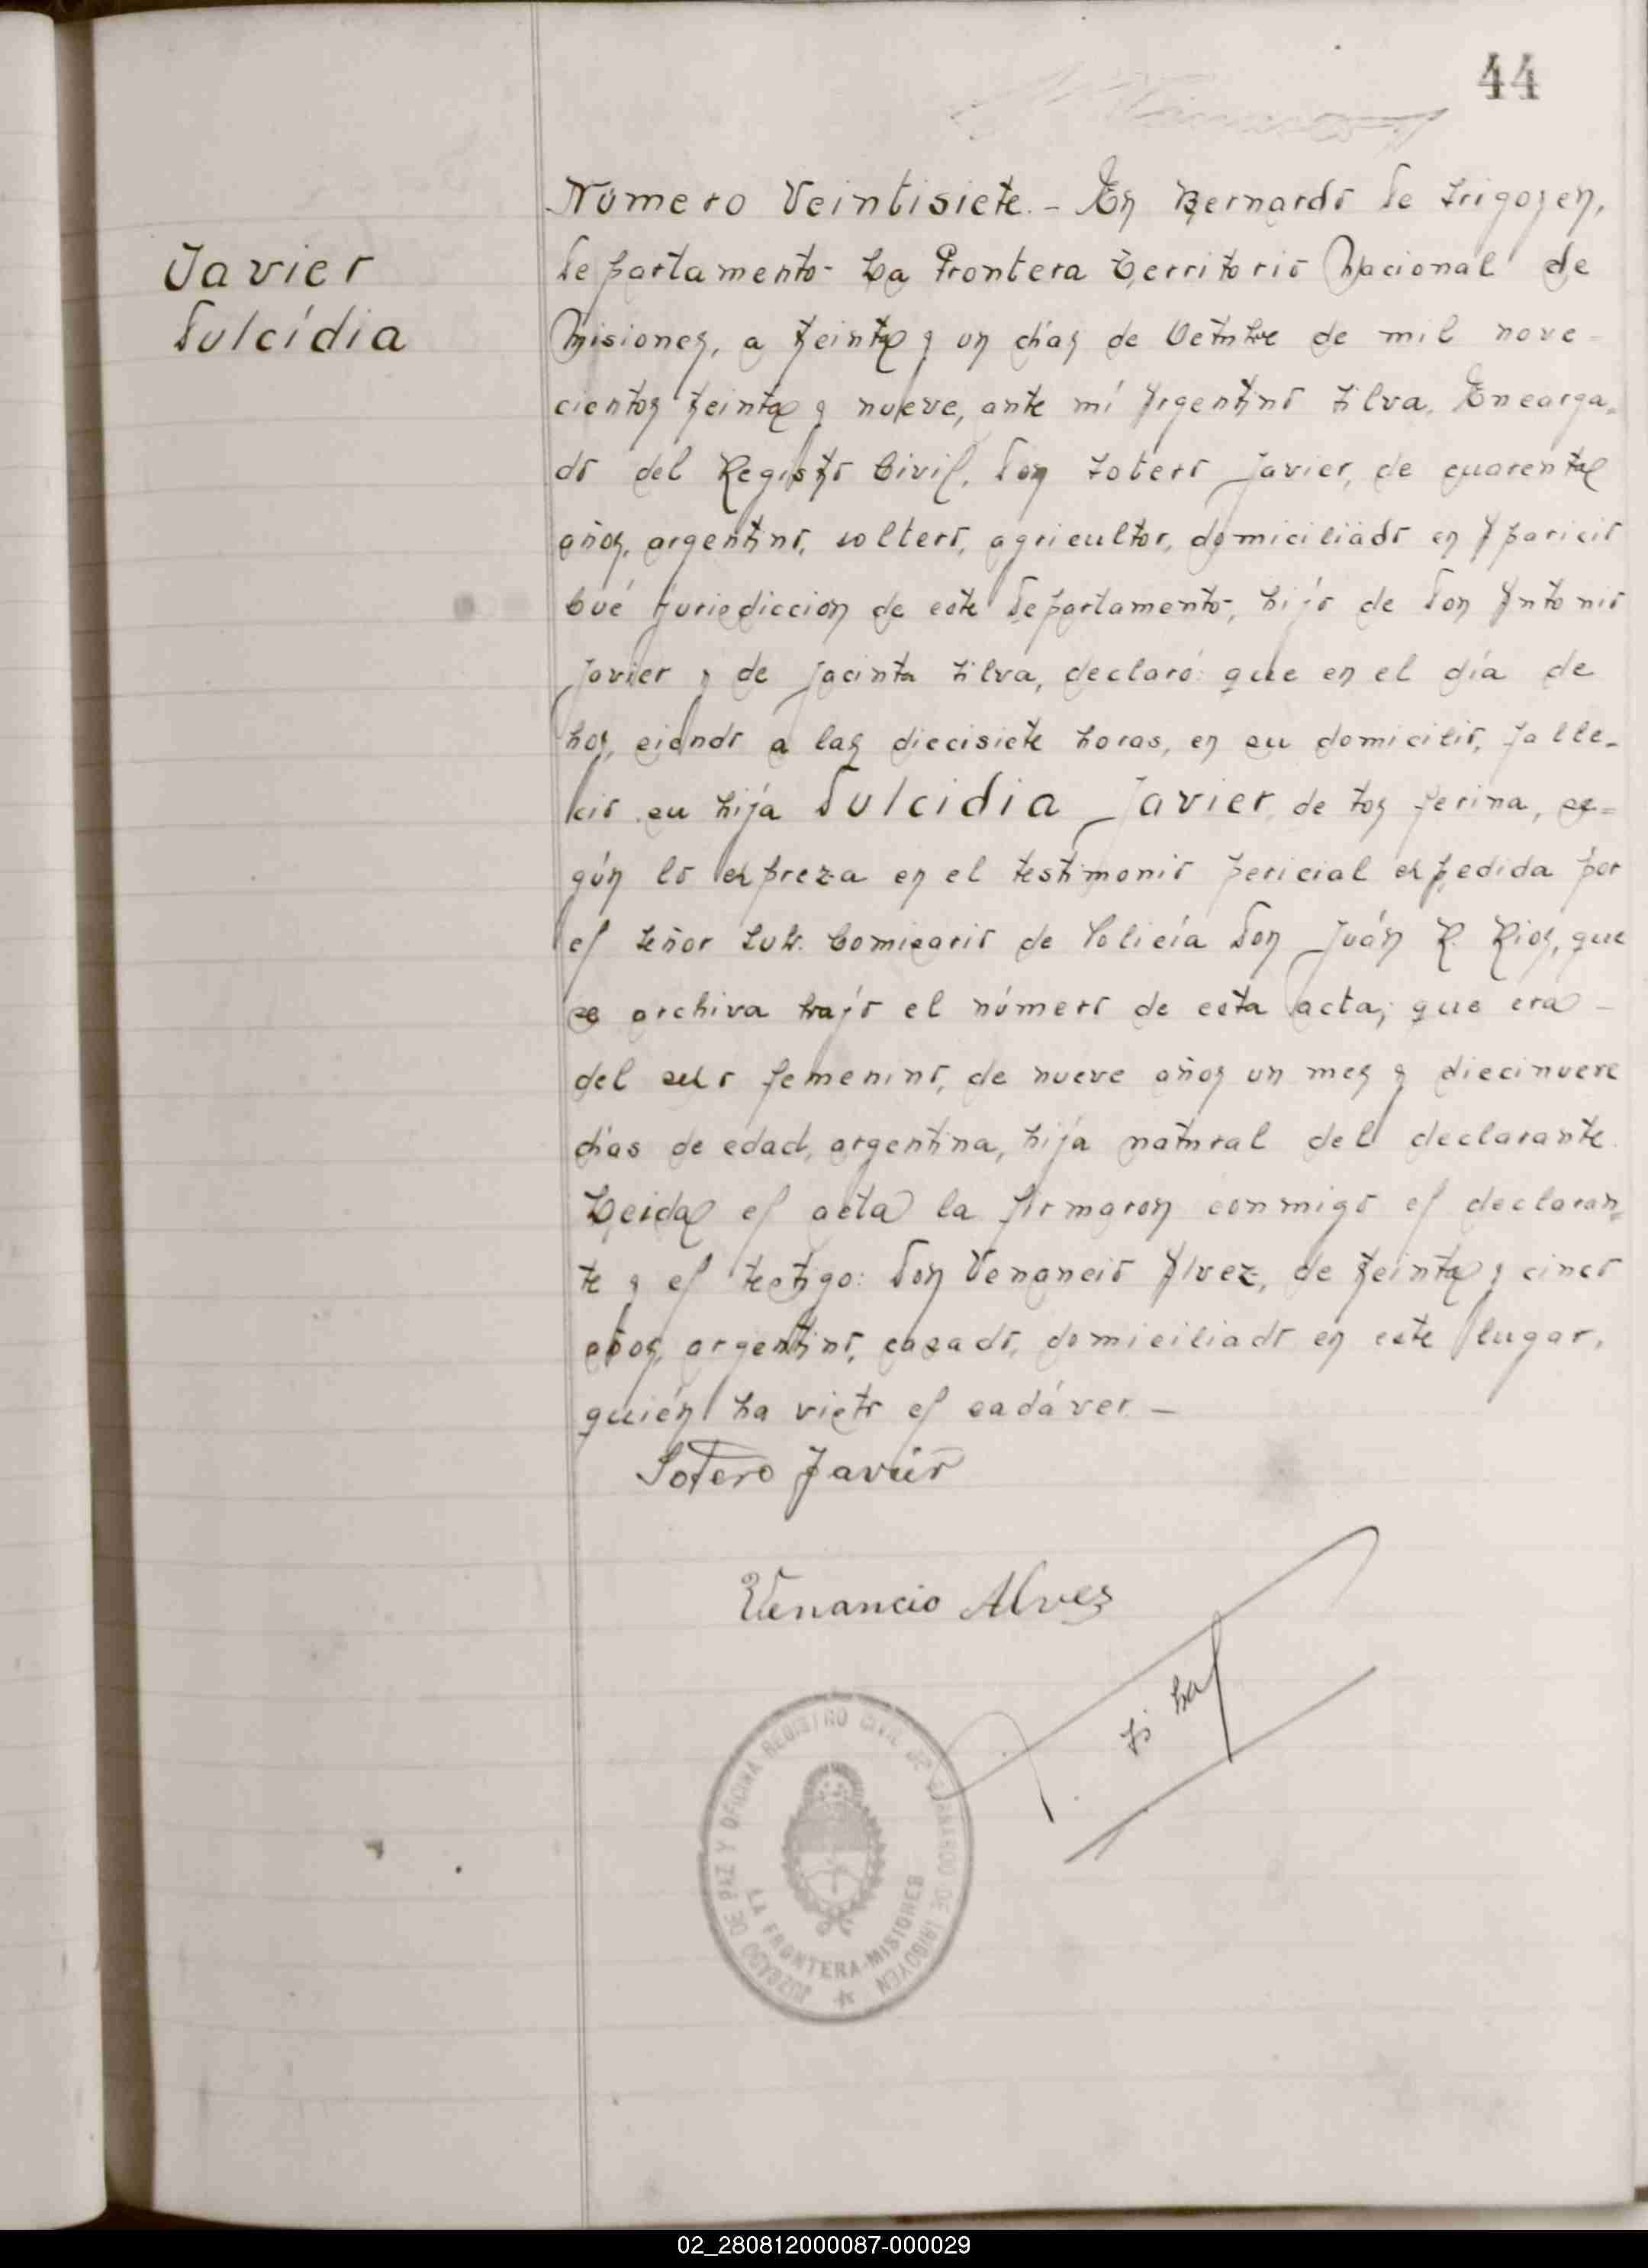 44
Javier
Dulcídia
Número Veintisiete.- En Bernardo de Irigoyen,
departamento La Frontera Territorio Nacional de
Misiones, a treinta y un días de Octubre de mil nove-
cientos treinta y nueve, ante mí Argentino Silva, Encarga-
do del Registro Civil, Don Sotero Javier, de cuarenta
años, argentino, soltero, agricultor, domiciliado en Aparicio
Cué jurisdiccion de este departamento, hijo de Don Antonio
Javier y de Jacinta Silva, declaró: que en el día de
hoy, siendo a las diecisiete horas, en su domicilio, falle-
ció su hija Dulcidia Javier, de tos ferina, se=
gún lo expreza en el testimonio pericial expedida por
el Señor Sub. Comisario de Policía Don Juán R. Rios, que
se archiva bajo el número de esta acta; que era -
del sexo femenino, de nueve años un mes y diecinueve
días de edad, argentina, hija natural del declarante.
Leida el acta la firmaron conmigo el declaran=
te y el testigo: Don Venancio Alvez, de treinta y cinco
años, argentino, casado, domiciliado en este lugar,
quién ha visto el cadáver. -
Sotero Javier
Venancio Alves
JUZGADO DE PAZ Y OFICINA REGISTRO CIVIL DE BERNARDO DE IRIGOYEN
LA FRONTERA-MISIONES
02_280812000087-000029